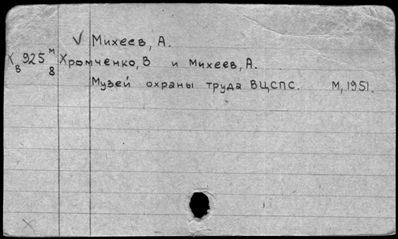 √ Михеев, А.
Хв 925 м/8 Хромченко, В и Михеев, А.
Музей охраны труда ВЦСПС. М, 1951.